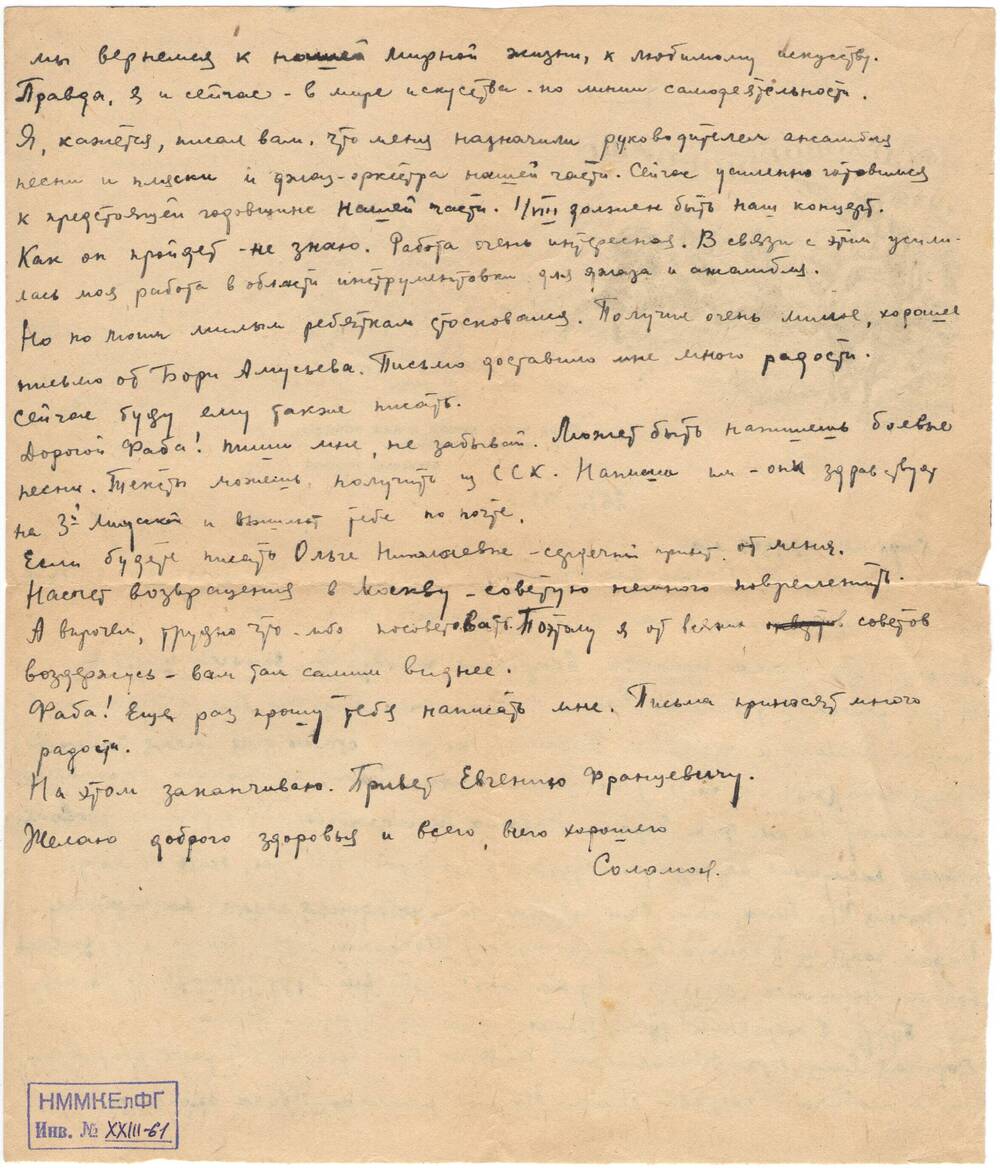 мы вернемся к нашей мирной жизни, к любимому искусству.
Правда, я и сейчас - в мире искусства - по линии самодеятельности.
Я, кажется, писал вам, что меня назначили руководителем ансамбля
песни и пляски и джаз-оркестра нашей части. Сейчас усиленно готовимся
к предстоящей годовщине нашей части. 1/VIII должен быть наш концерт.
Как он пройдет - не знаю. Работа очень интересная. В связи с этим усили-
лась моя работа в области инструментовки для джаза и ансамбля.
Но по моим милым ребяткам стосковался. Получил очень милое, хорошее
письмо от Бори Амусьева. Письмо доставило мне много радости.
Сейчас буду ему также писать.
Дорогой Фаба! Пиши мне, не забывай. Может быть напишешь боевые
песни. Тексты можешь получить из ССК. Напиши им - они здравствуют
на 3й и вышлют тебе по почте.
Если будете писать Ольге Николаевне - сердечный привет от меня.
Насчет возвращения в Москву - советую немного повременить.
А впрочем, трудно что-либо посоветовать. Поэтому я от всяких советов
воздержусь - вам там самим виднее.
Фаба! Еще раз прошу тебя написать мне. Письма приносят много
радости.
На этом заканчиваю. Привет Евгению Францевичу.
Желаю доброго здоровья и всего, всего хорошего
Соломон.
НММКЕлФГ
Инв. № XXIII-61